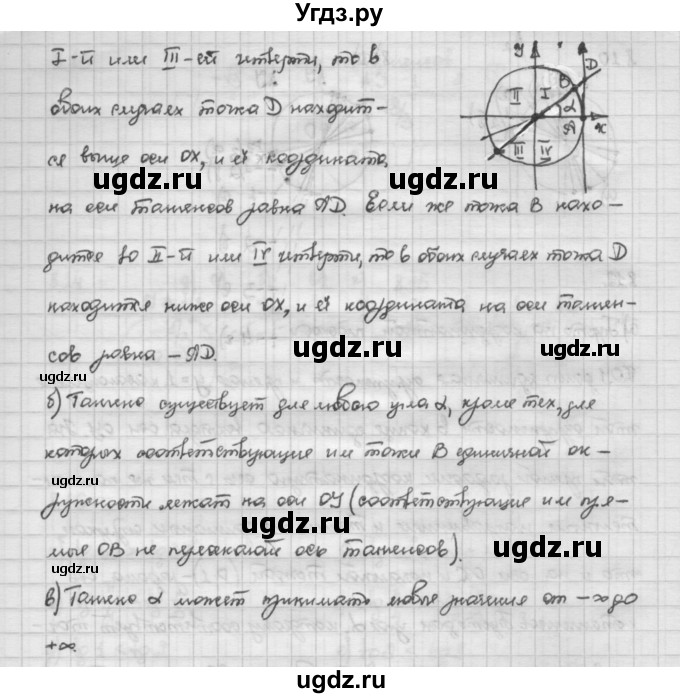 Угдз.ру
I-й или III-ей четверти, то в
обоих случаях точка D находит-
ся выше оси OX, и её координата
на оси тангенсов равна AD. Если же точка B нахо-
дится во II-й или IV четверти, то в обоих случаях точка D
находится ниже оси OX, и её координата на оси танген-
сов равна – AD.
б) Тангенс существует для любого угла α, кроме тех, для
которых соответствующие им точки B единичной ок-
ружности лежат на оси OY (соответствующие им пря-
мые OB не пересекают ось тангенсов).
в) Тангенс α может принимать любые значения от –∞ до
+∞.
y
D
B
II
I
α
A
x
III
IV
ugdz.ru
ugdz.ru
ugdz.ru
ugdz.ru
ugdz.ru
ugdz.ru
ugdz.ru
ugdz.ru
ugdz.ru
ugdz.ru
ugdz.ru
ugdz.ru
ugdz.ru
ugdz.ru